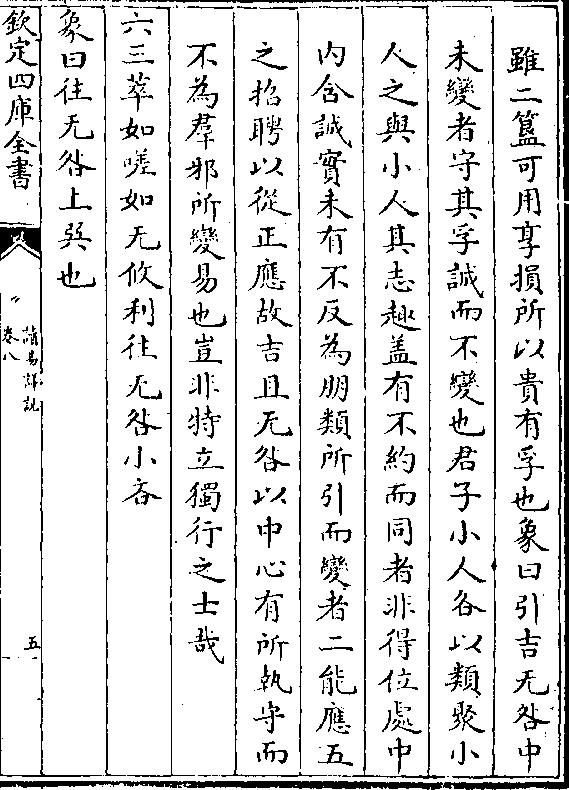 雖二簋可用享損所以貴有孚也象曰引吉无咎中
未變者守其孚誠而不變也君子小人各以類聚小
人之與小人其志趣盖有不約而同者非得位處中
内含誠實未有不反為朋類所引而變者二能應五
之招聘以從正應故吉且无咎以中心有所執守而
不為羣邪所變易也豈非特立獨行之士哉
六三萃如嗟如无攸利往无咎小吝
象曰往无咎上巽也
欽定四庫全書
讀易詳說
卷八
五